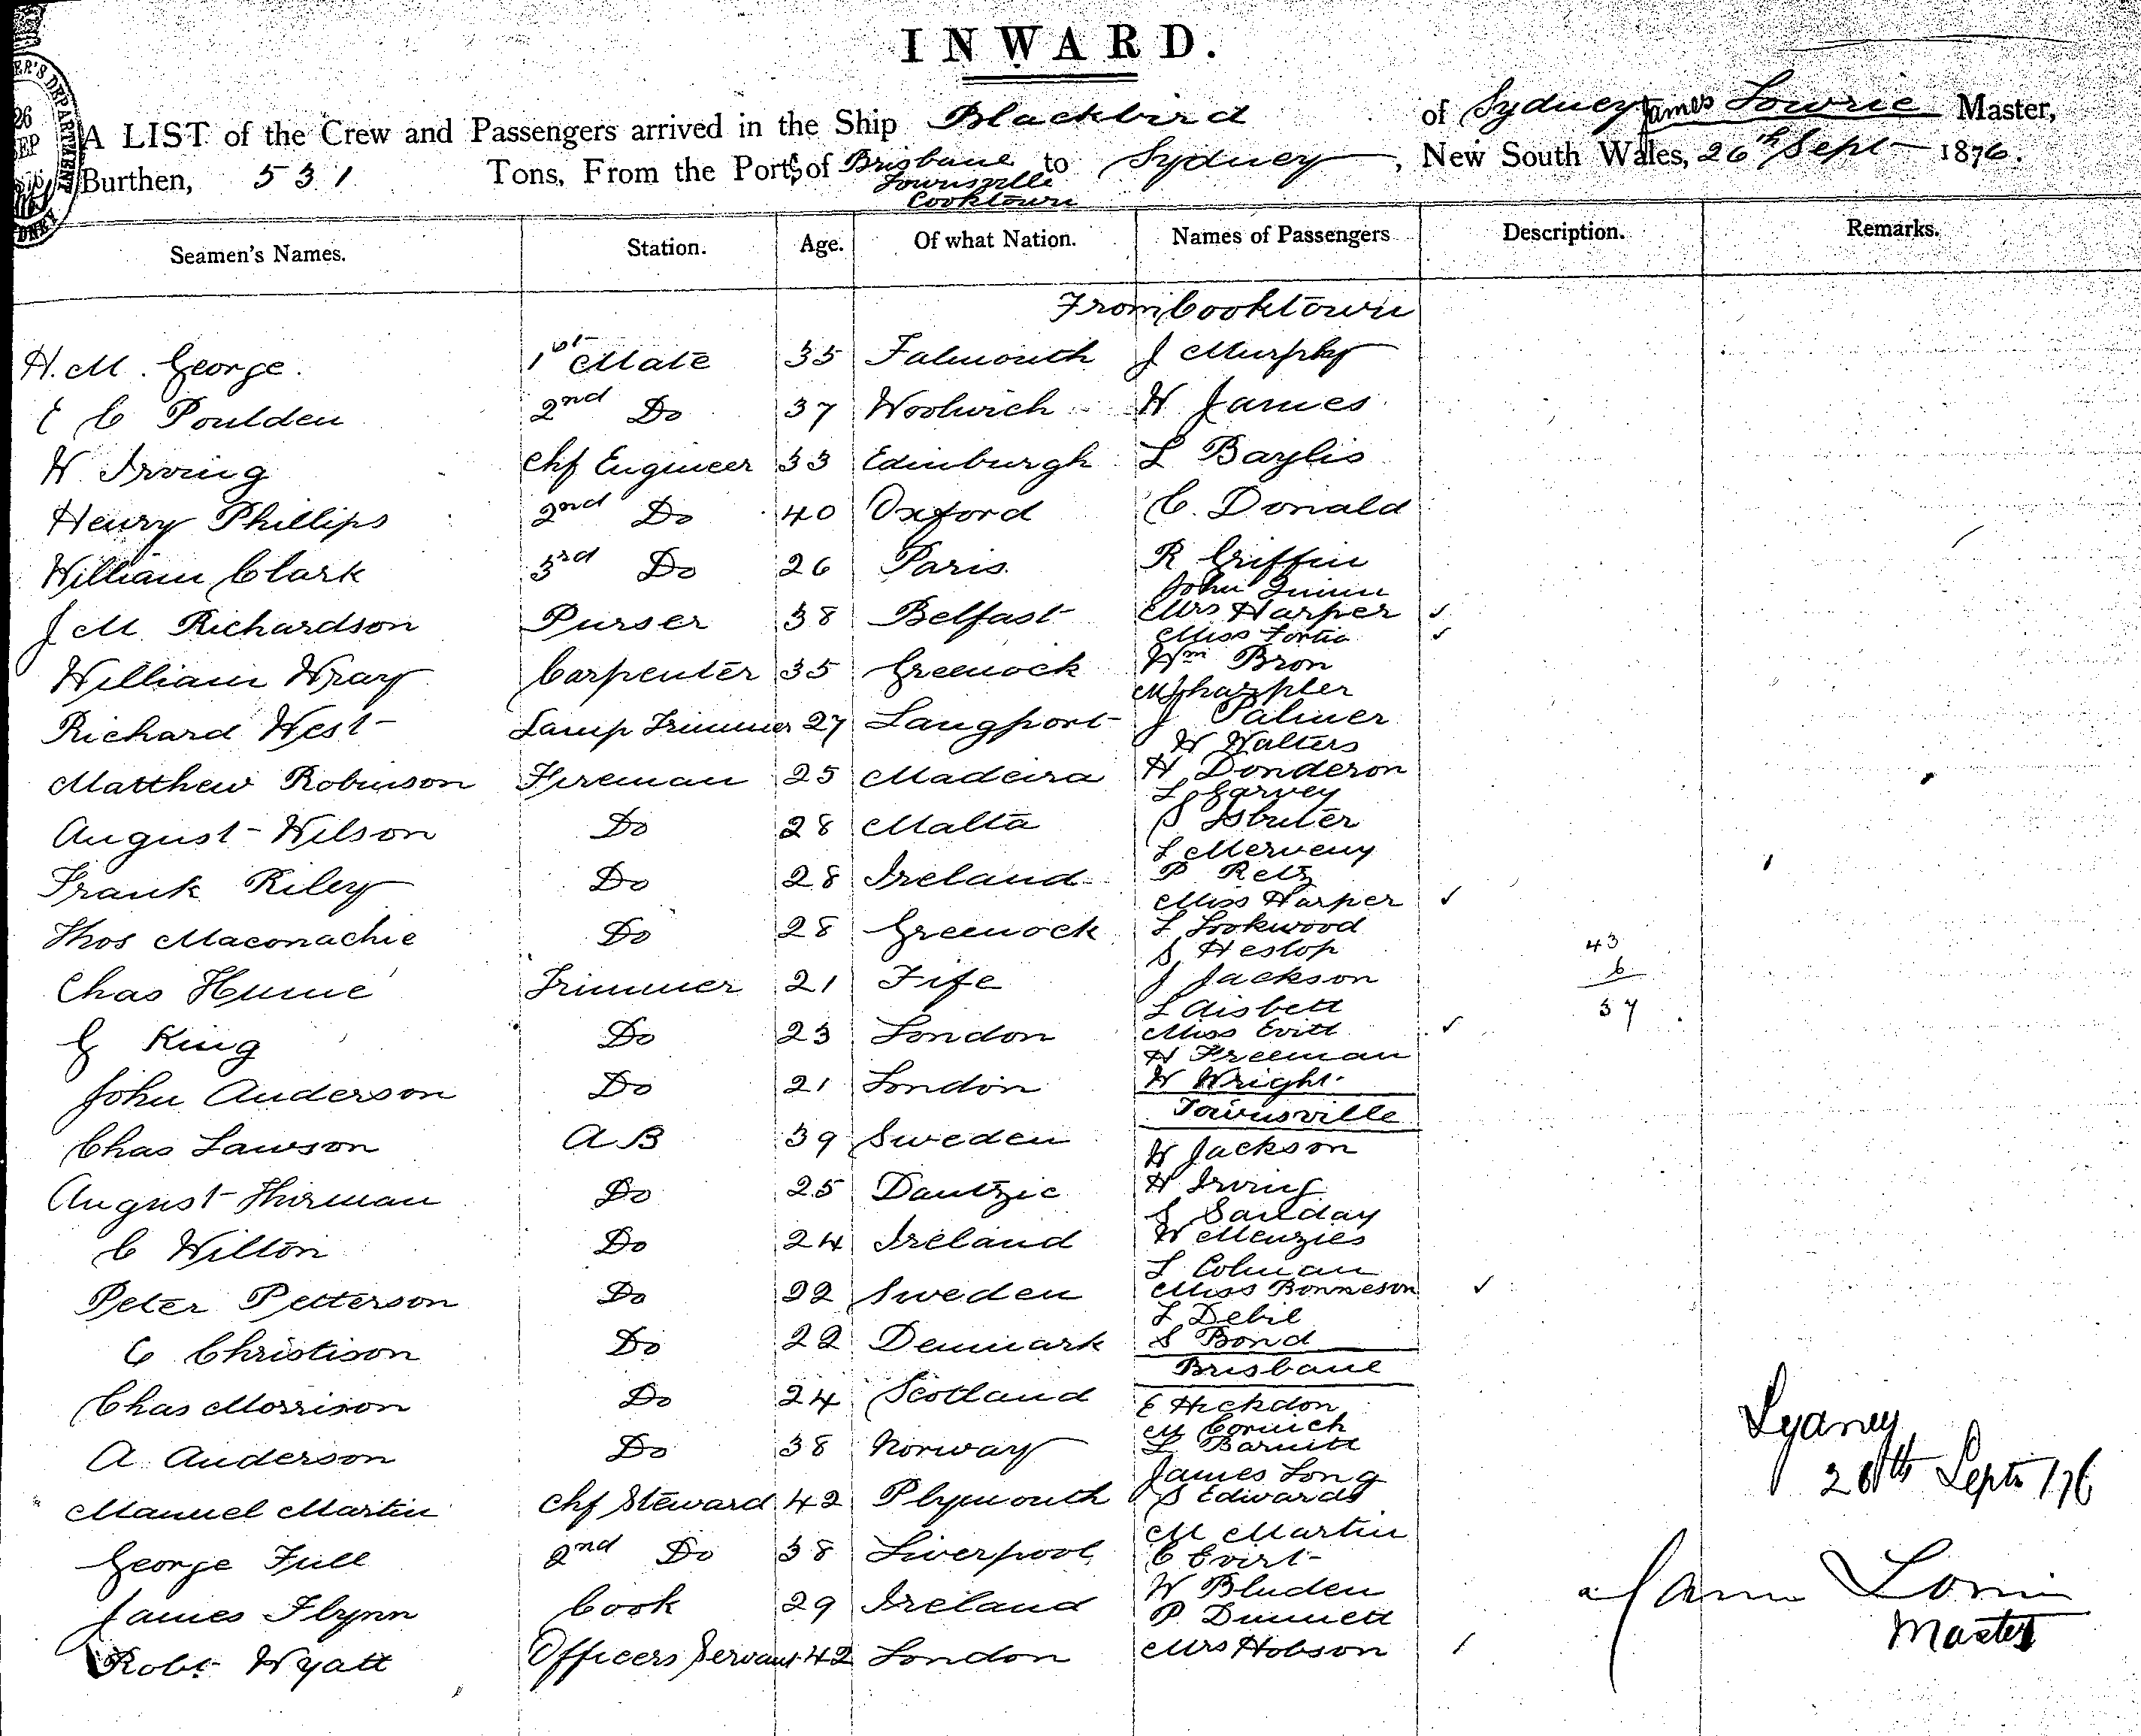 INWARD.
A LIST of the Crew and Passengers arrived in the Ship Blackbird of Sydney James Lowrie Master,
Burthen, 531 Tons, From the Ports of Brisbane Townsville Cooktown to Sydney, New South Wales, 26th Sept 1876.
Seamen's Names. Station. Age. Of what Nation. Names of Passengers Description. Remarks.
From Cooktown
H. M. George. 1st Mate 35 Falmouth J Murphy
E C Poulden 2nd Do 37 Woolwich W James
W Irving Chf Engineer 33 Edinburgh L Baylis
Henry Phillips 2nd Do 40 Oxford C. Donald
William Clark 3rd Do 26 Paris R Griffin
John Quinn
J M Richardson Purser 38 Belfast Mrs Harper ✓
Miss Fortia ✓
William Wray Carpenter 35 Greenock Wm Bron
M
Richard West Lamp Trimmer 27 Langport J Palmer
W Walters
Matthew Robinson Fireman 25 Madeira H Donderon
L Garvey
August Wilson Do 28 Malta S Isbuter
L Merveny
Frank Riley Do 28 Ireland P Retz
Miss Harper ✓
Thos Maconachie Do 28 Greenock L Lookwood
S Heslop 43
Chas Hume Trimmer 21 Fife J Jackson 6
L Aisbett 37
G King Do 23 London Miss Evitt ✓
H Freeman
John Anderson Do 21 London W Wright
Townsville
Chas Lawson AB 39 Sweden W Jackson
August Thirman Do 25 Dantzic H Irving
S Sanday
C Wilton Do 24 Ireland W Menzies
L Colman
Peter Petterson Do 22 Sweden Miss Bonneson ✓
L Debil
C Christison Do 22 Denmark S Bond
Brisbane
Chas Morrison Do 24 Scotland E Hickdon
M Cornich
A. Anderson Do 38 Norway L Barnitt
James Long
Manuel Martin Chf Steward 42 Plymouth S Edwards
M Martin
George Full 2nd Do 38 Liverpool C Evirt
W Bluden
James Flynn Cook 29 Ireland P. Dunnett
Robt Wyatt Officers Servant 42 London Mrs Hobson /
Sydney
26th Sept /76
James Lowrie
Master